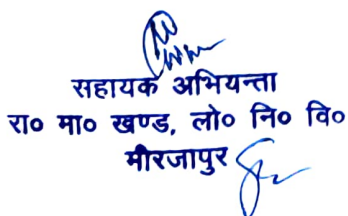 सहायक अभियन्ता
रा० मा० खण्ड, लो० नि० वि०
मीरजापुर